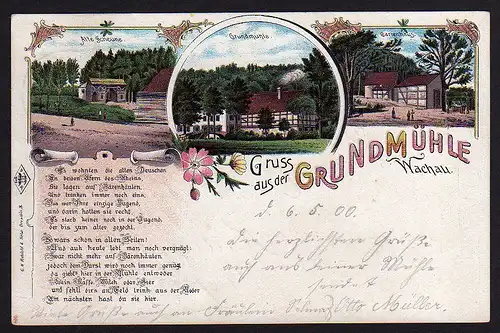 Alte Scheune.
Grundmühle
Gartenhaus
Gruss
aus der GRUNDMÜHLE
Wachau.
Es wohnten die alten Deutschen
An beiden Ufern des Rheins,
Sie lagen auf Bärenhäuten,
Und tranken immer noch eins.
Das war Ihre einzige Tugend,
und darin hatten sie recht,
Es starb keiner noch in der Jugend,
der bis zum alter gezecht.
So wars schon in alten Zeiten!
Und auch heute lebt man noch vergnügt:
Zwar nicht mehr auf Bärenhäuten
jedoch dem Durst wird noch immer genügt
da giebt hier in der Mühle entweder
Wein Kaffe Milch oder Bier
und fehlt dirs an Geld trink aus der Röder
Ein nächstes hast du sie hier.
d. 6.5.00.
Die herzlichsten Grüße
auch aus deiner Mühle
sendet
Otto Müller.
Grüße auch an Fräulein Selma